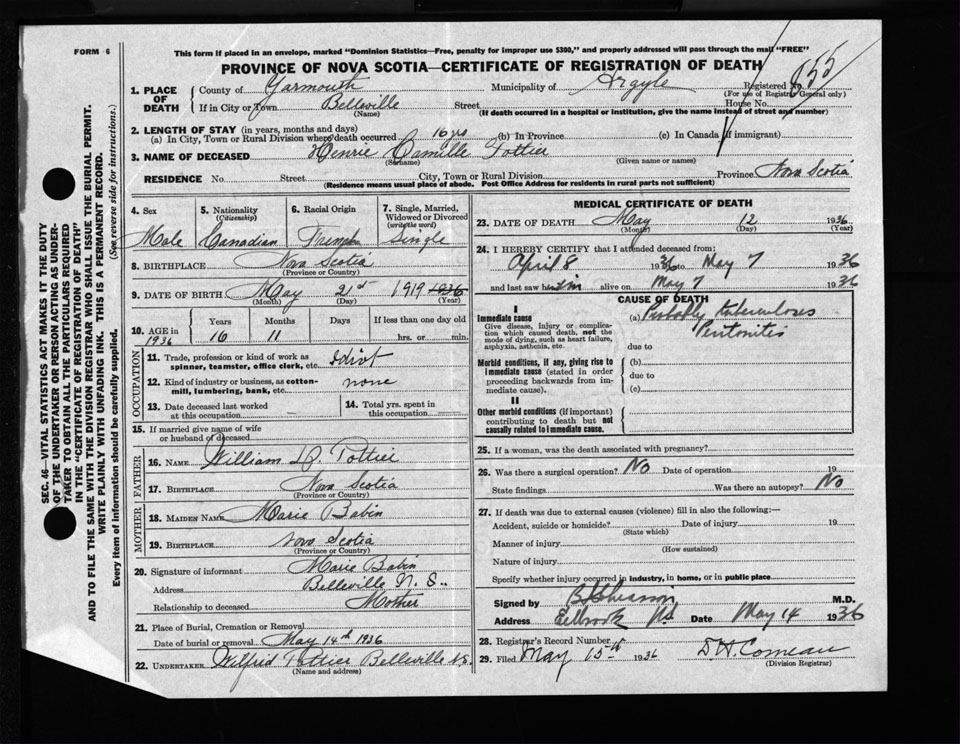 FORM 6
This form if placed in an envelope, marked "Dominion Statistics—Free, penalty for improper use $300," and properly addressed will pass through the mail "FREE"
PROVINCE OF NOVA SCOTIA—CERTIFICATE OF REGISTRATION OF DEATH
1. PLACE OF DEATH
County of Yarmouth Municipality of Argyle Registered No. 855
(For use of Registrar General only)
If in City or Town Belleville Street House No.
(Name) (If death occurred in a hospital or institution, give the name instead of street and number)
2. LENGTH OF STAY (in years, months and days)
(a) In City, Town or Rural Division where death occurred 16 yrs (b) In Province (c) In Canada (if immigrant)
3. NAME OF DECEASED Henrie Camille Pottier
(Surname) (Given name or names)
RESIDENCE No. Street City, Town or Rural Division Province Nova Scotia
(Residence means usual place of abode. Post Office Address for residents in rural parts not sufficient)
4. Sex Male
5. Nationality (Citizenship) Canadian
6. Racial Origin French
7. Single, Married, Widowed or Divorced (write the word) Single
8. BIRTHPLACE Nova Scotia
(Province or Country)
9. DATE OF BIRTH May 21st 1919 1936
(Month) (Day) (Year)
10. AGE in 1936 Years 16 Months 11 Days If less than one day old hrs. or min.
OCCUPATION
11. Trade, profession or kind of work as spinner, teamster, office clerk, etc. Idiot
12. Kind of industry or business, as cotton-mill, lumbering, bank, etc. none
13. Date deceased last worked at this occupation
14. Total yrs. spent in this occupation
15. If married give name of wife or husband of deceased
FATHER
16. NAME William D. Pottier
17. BIRTHPLACE Nova Scotia
(Province or Country)
MOTHER
18. MAIDEN NAME Marie Babin
19. BIRTHPLACE Nova Scotia
(Province or Country)
20. Signature of informant Marie Babin
Address Belleville N. S.
Relationship to deceased Mother
21. Place of Burial, Cremation or Removal
Date of burial or removal May 14th 1936
22. UNDERTAKER Wilfrid Pottier Belleville N.S.
(Name and address)
MEDICAL CERTIFICATE OF DEATH
23. DATE OF DEATH May 12 1936
(Month) (Day) (Year)
24. I HEREBY CERTIFY that I attended deceased from:
April 8 1936 to May 7 1936
and last saw him alive on May 7 1936
CAUSE OF DEATH
I
Immediate cause
Give disease, injury or complication which caused death, not the mode of dying, such as heart failure, asphyxia, asthenia, etc.
(a) Probably tuberculoses
Peritonitis
due to
Morbid conditions, if any, giving rise to immediate cause (stated in order proceeding backwards from immediate cause).
(b)
due to
(c)
II
Other morbid conditions (if important) contributing to death but not causally related to immediate cause.
25. If a woman, was the death associated with pregnancy?
26. Was there a surgical operation? No Date of operation 19
State findings Was there an autopsy? No
27. If death was due to external causes (violence) fill in also the following:—
Accident, suicide or homicide? Date of injury 19
(State which)
Manner of injury
(How sustained)
Nature of injury
Specify whether injury occurred in industry, in home, or in public place
Signed by M.D.
Address Date May 14 1936
28. Registrar's Record Number
29. Filed May 15th 1936 D. H. Comeau
(Division Registrar)
SEC. 46—VITAL STATISTICS ACT MAKES IT THE DUTY
OF THE UNDERTAKER OR PERSON ACTING AS UNDERTAKER TO OBTAIN ALL THE PARTICULARS REQUIRED
IN THE "CERTIFICATE OF REGISTRATION OF DEATH"
AND TO FILE THE SAME WITH THE DIVISION REGISTRAR WHO SHALL ISSUE THE BURIAL PERMIT.
WRITE PLAINLY WITH UNFADING INK. THIS IS A PERMANENT RECORD.
Every item of information should be carefully supplied. (See reverse side for instructions.)